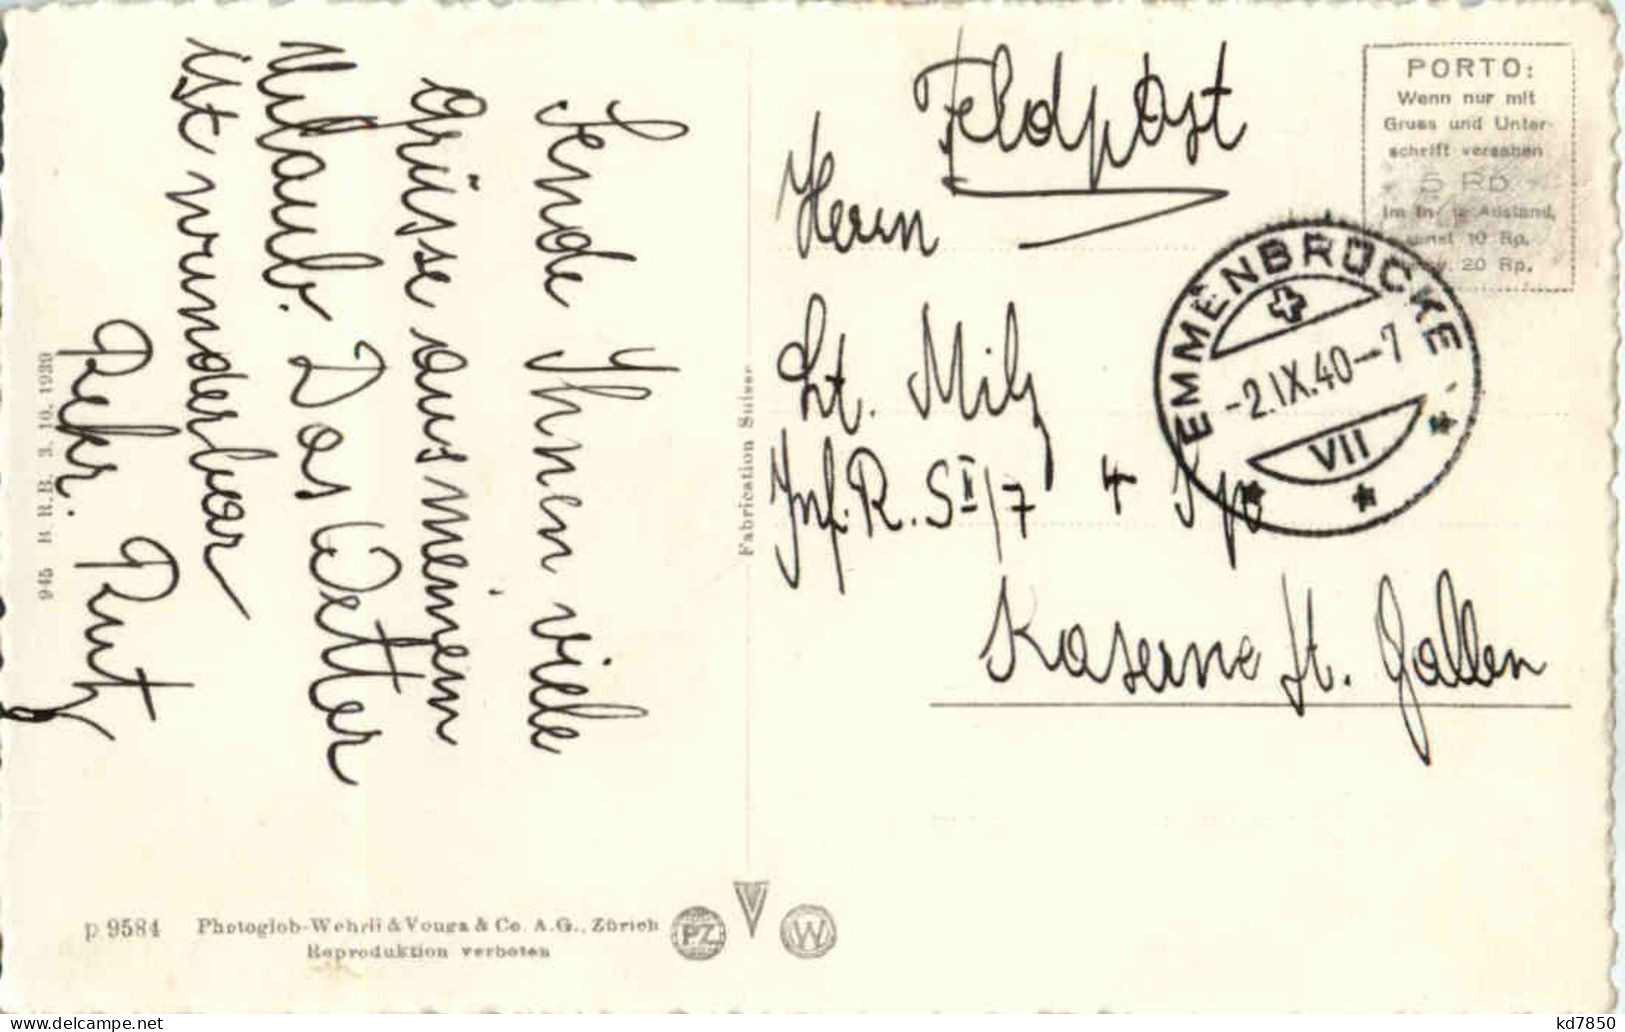 Sende Ihnen viele
Grüsse aus meinem
Urlaub. Das Wetter
ist wunderbar
Rekr. Rutz
Feldpost
Herrn
Lt. Milz
Inf. R. S II/7 4 Kp
Kaserne St. Gallen
PORTO:
Wenn nur mit
Gruss und Unter-
schrift versehen
5 Rp
im In- u. Ausland,
sonst 10 Rp.
20 Rp.
EMMENBRÜCKE
-2.IX.40-7
VII
Fabrication Suisse
945 B.R.B. 3. 10. 1939
p 9584
Photoglob-Wehrli & Vouga & Co. A.G., Zürich
Reproduktion verboten
PZ
W
delcampe.net
kd7850